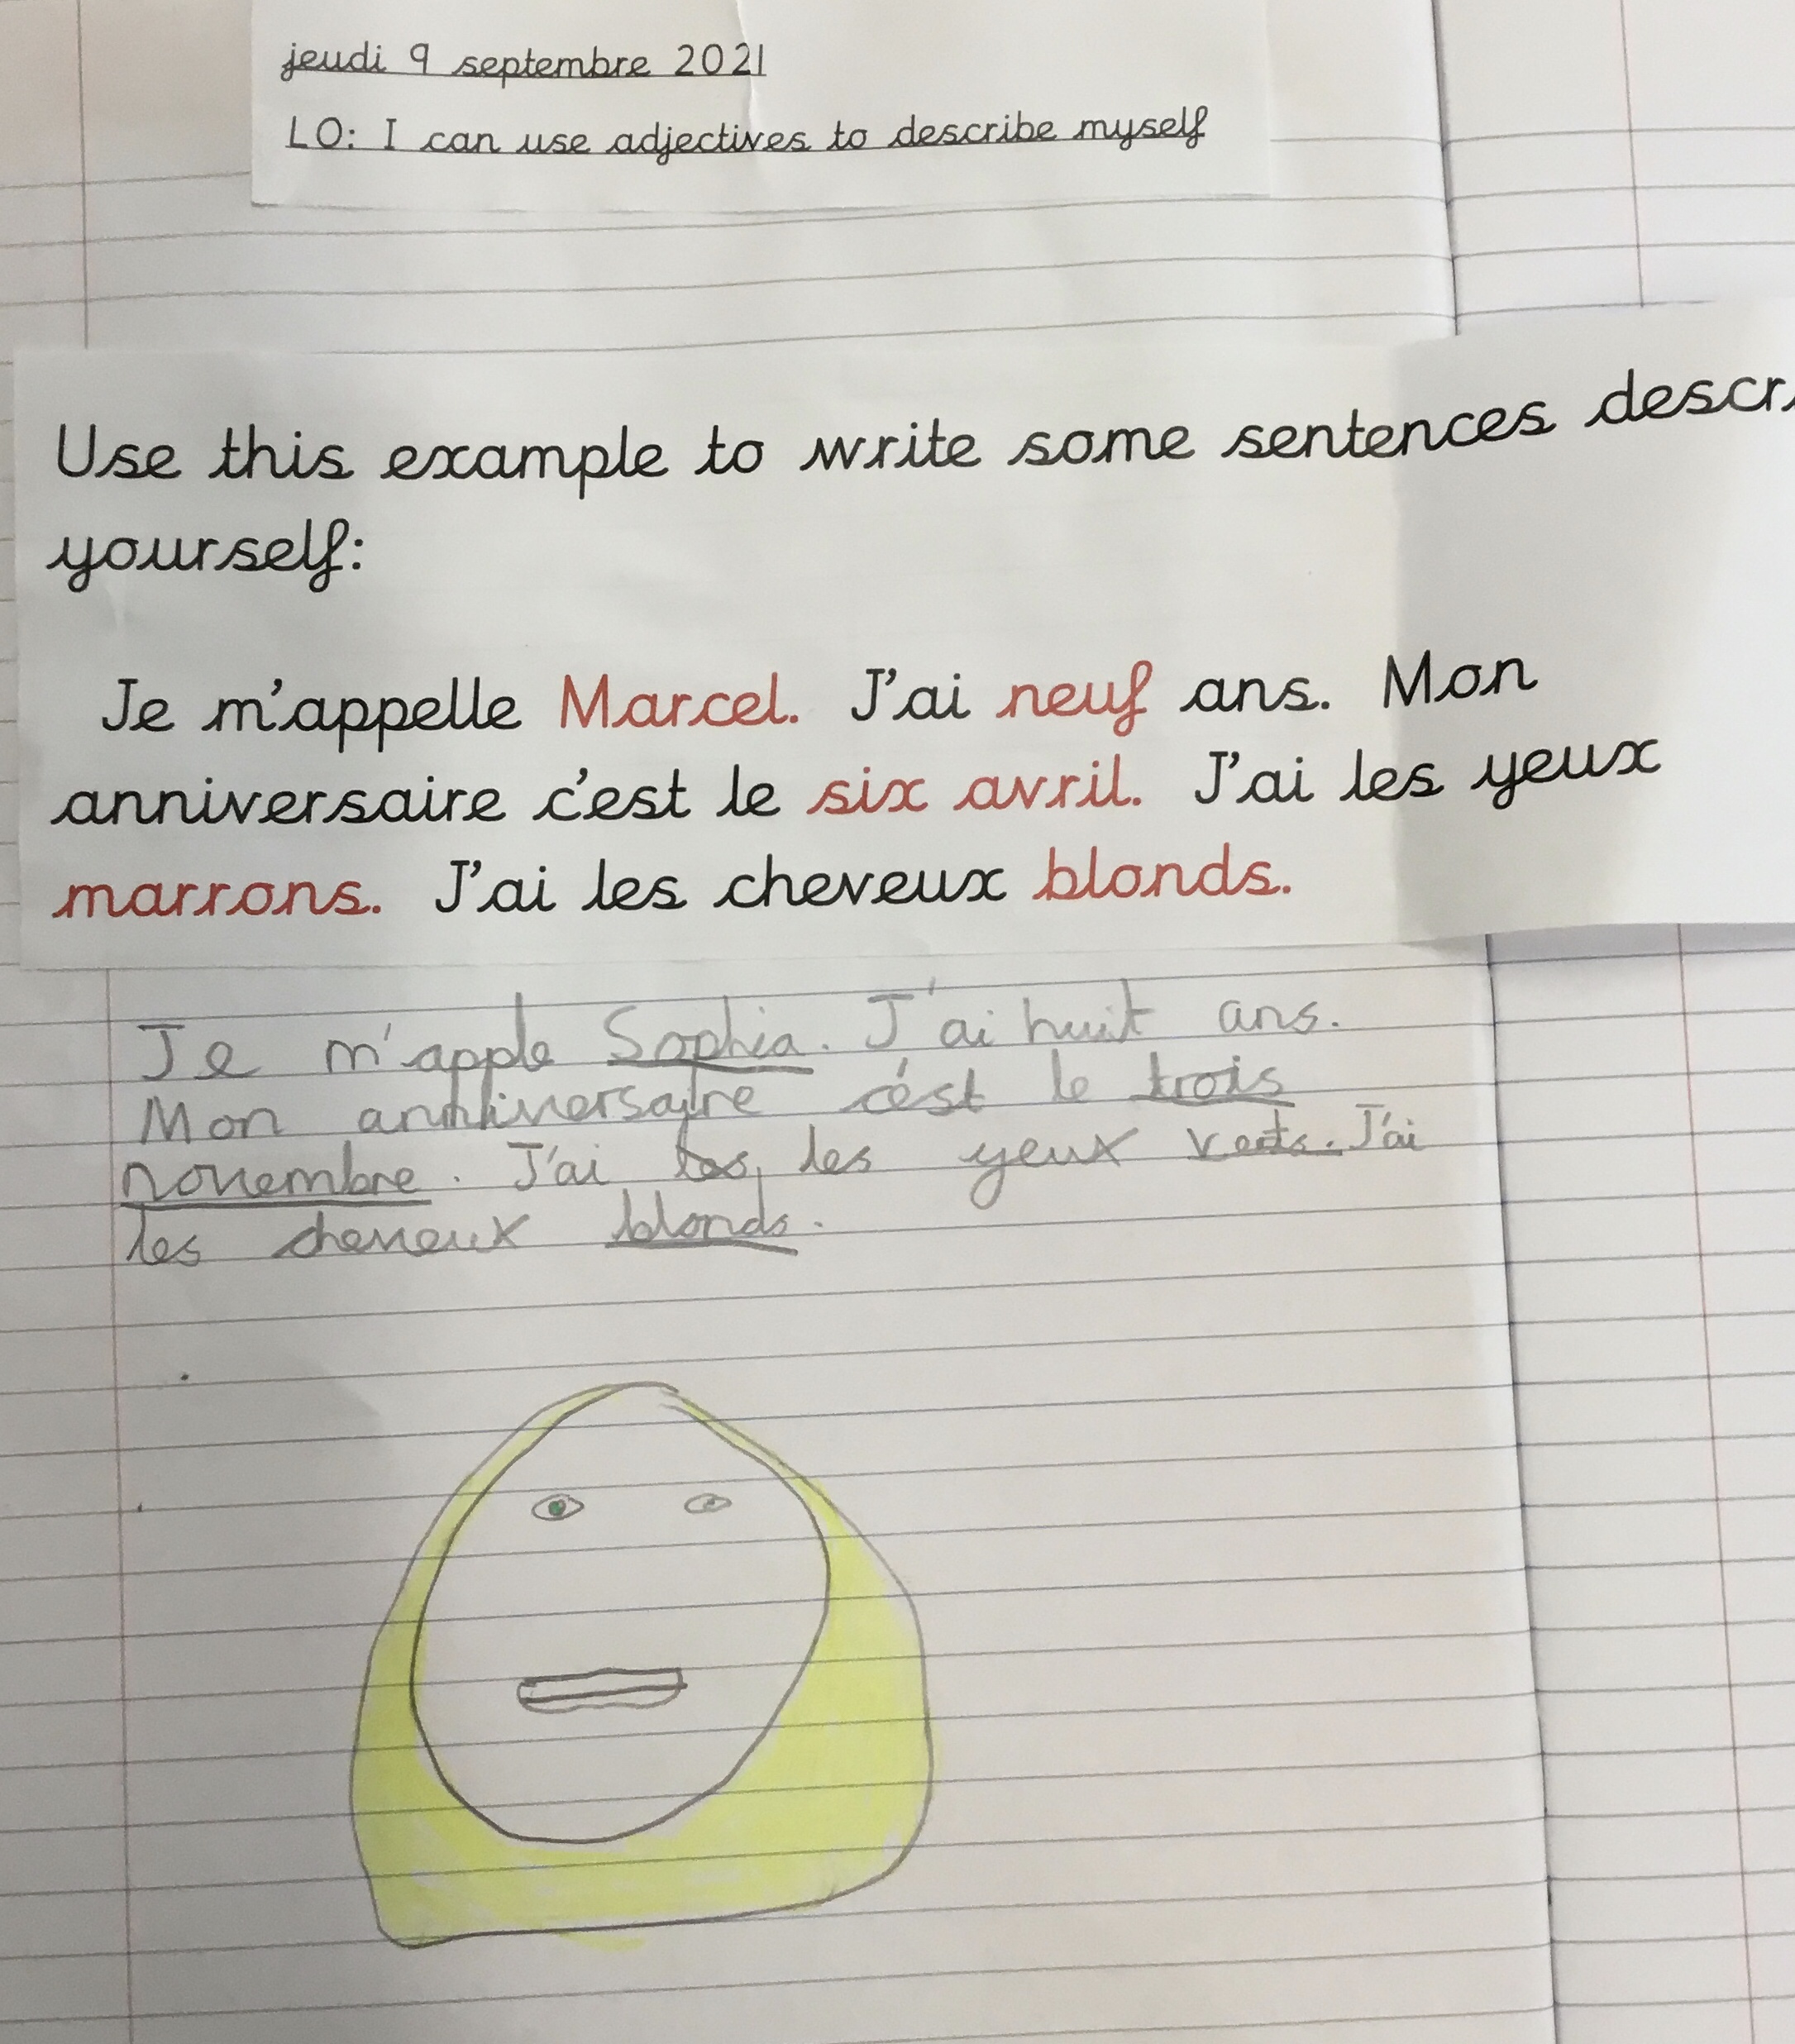 jeudi 9 septembre 2021
LO: I can use adjectives to describe myself
Use this example to write some sentences descr
yourself:
Je m'appelle Marcel. J'ai neuf ans. Mon
anniversaire c'est le six avril. J'ai les yeux
marrons. J'ai les cheveux blonds.
Je m'apple Sophia. J'ai huit ans.
Mon anniversaire c'est le trois
novembre. J'ai les yeux verts. J'ai
les cheveux blonds.